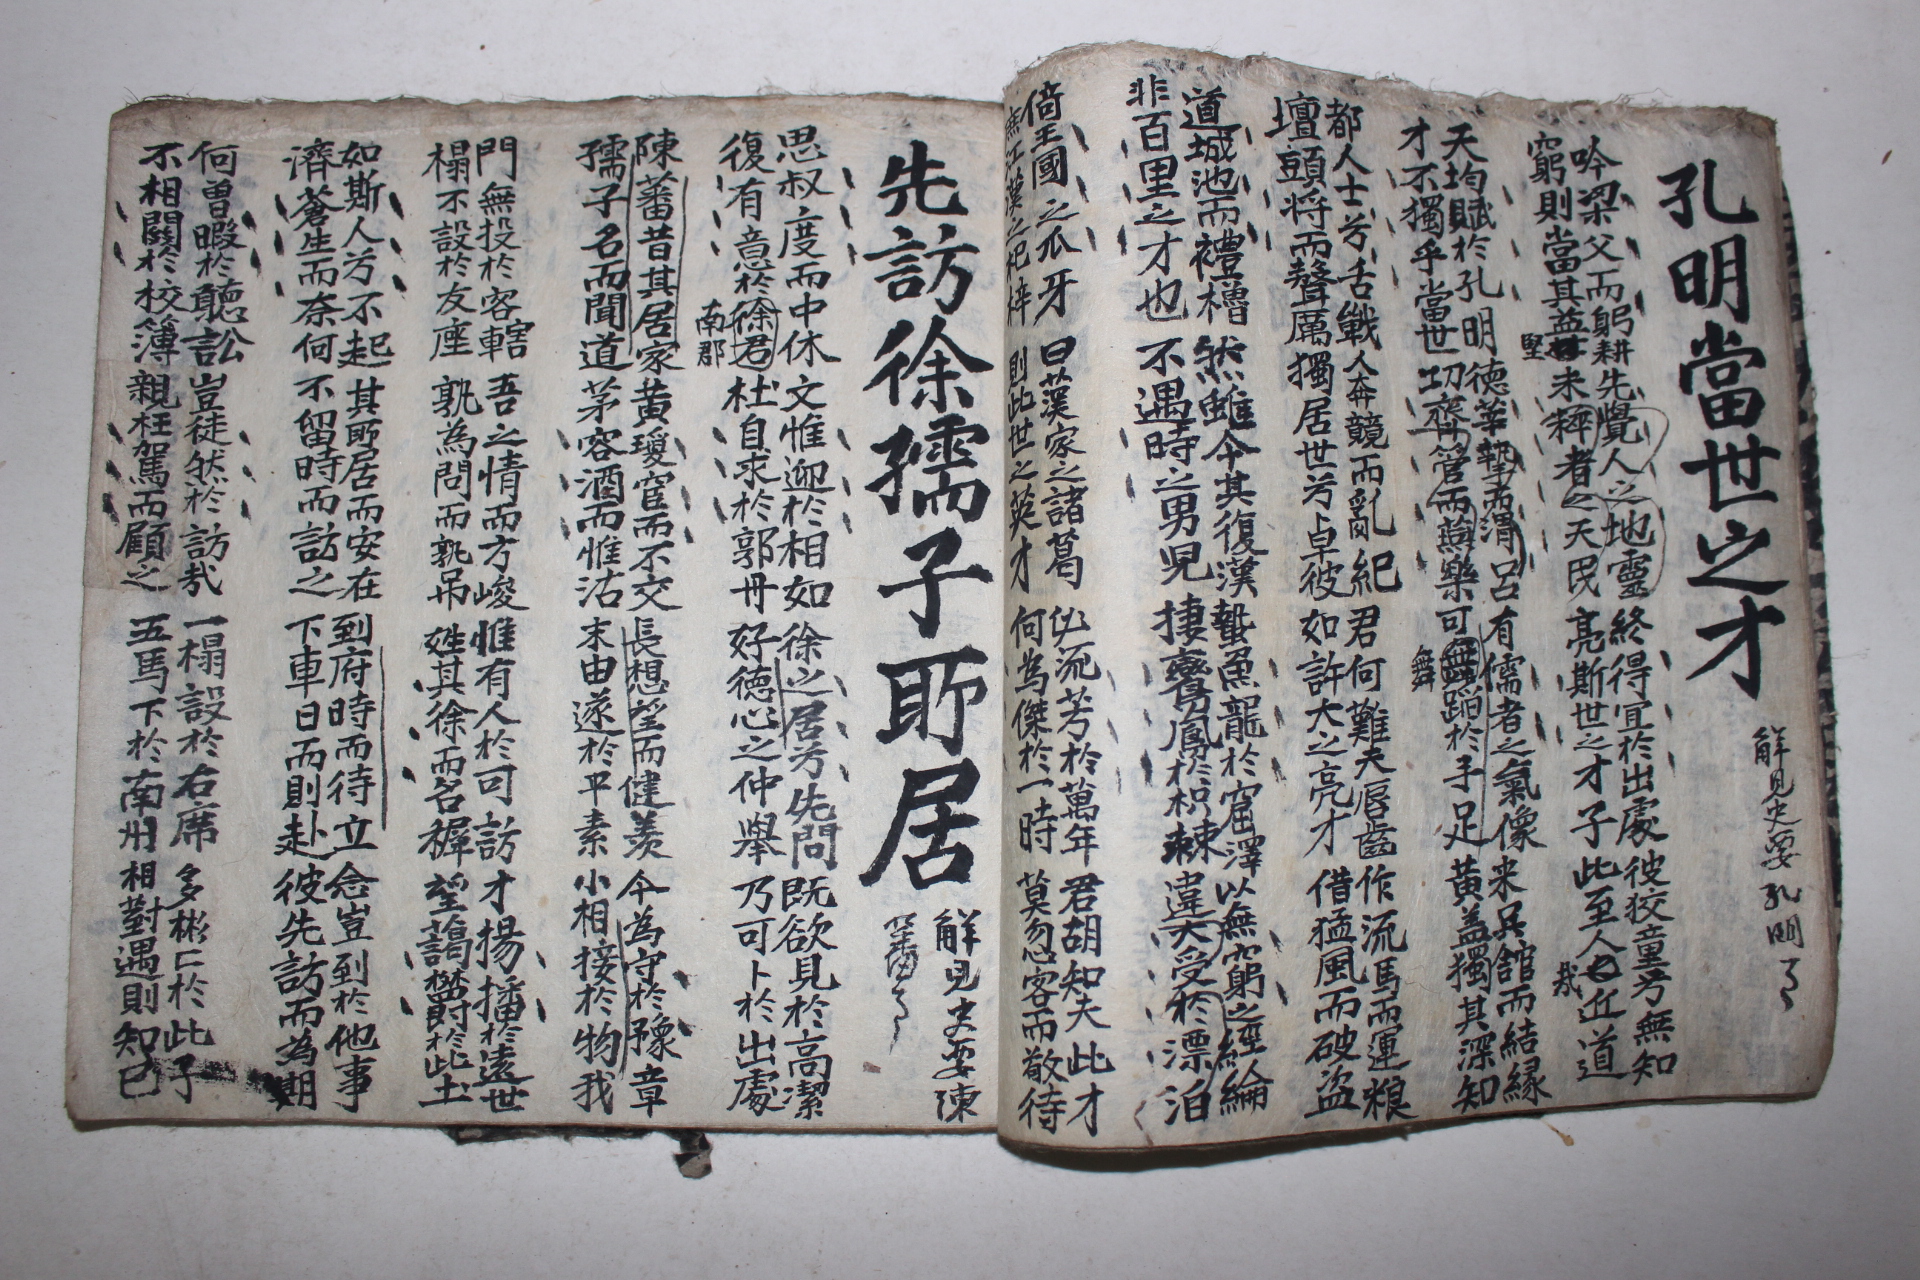 孔明當世之才
解見史要孔明了
吟梁父而躬耕 先覺人之地靈 終得宜於出處 彼狡童兮無知
窮則當其益堅 未釋者之天民 亮斯世之才子 此至人哉近道
天均賦於孔明 德莘摯而渭呂 有儒者之氣像 来吳館而結緣
才不獨乎當世 功齊管而燕樂 可舞蹈於手足 黃盖獨其深知
都人士兮舌戰 人奔競而亂紀 君何難夫唇齒 作流馬而運粮
壇頭將而聲厲 獨居世兮卓彼 如許大之亮才 借猛風而破盜
道城池而禮櫓 然雖今其復漢 蟄魚龍於窟澤 以無窮之經綸
非百里之才也 不遇時之男児 捿鸞鳳於枳棘 違大受於漂泊
倚王國之爪牙 曰漢家之諸葛 必流芳於萬年 君胡知夫此才
無江漢之杞梓 則此世之英才 何為傑於一時 莫忽容而敬待
先訪徐孺子所居
解見史要陳蕃了
思叔度而中休 文惟迎於相如 徐之居兮先問 既欲見於高潔
復有意於徐君 杜自求於郭冊 好德心之仲舉 乃可卜於出處
南郡
陳蕃昔其居家 黃瓊宦而不交 長想望而健羨 今為守於豫章
孺子名而聞道 茅容酒而惟沽 末由遂於平素 小相接於物我
門無投於客轄 吾之情而方峻 惟有人於可訪 才揚播於遠世
榻不設於友座 孰為問而孰吊 姓其徐而名穉 望藹欝於此土
如斯人兮不起 其所居而安在 到府時而待立 念豈到於他事
濟蒼生而奈何 不留時而訪之 下車日而則赴 彼先訪而為期
何曾暇於聽訟 豈徒然於訪哉 一榻設於右席 多彬仁於此子
不相關於校簿 親枉駕而顧之 五馬下於南州 相對遇則知己